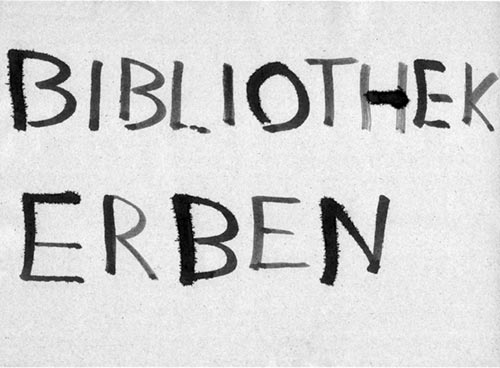 BIBLIOTHEK
ERBEN